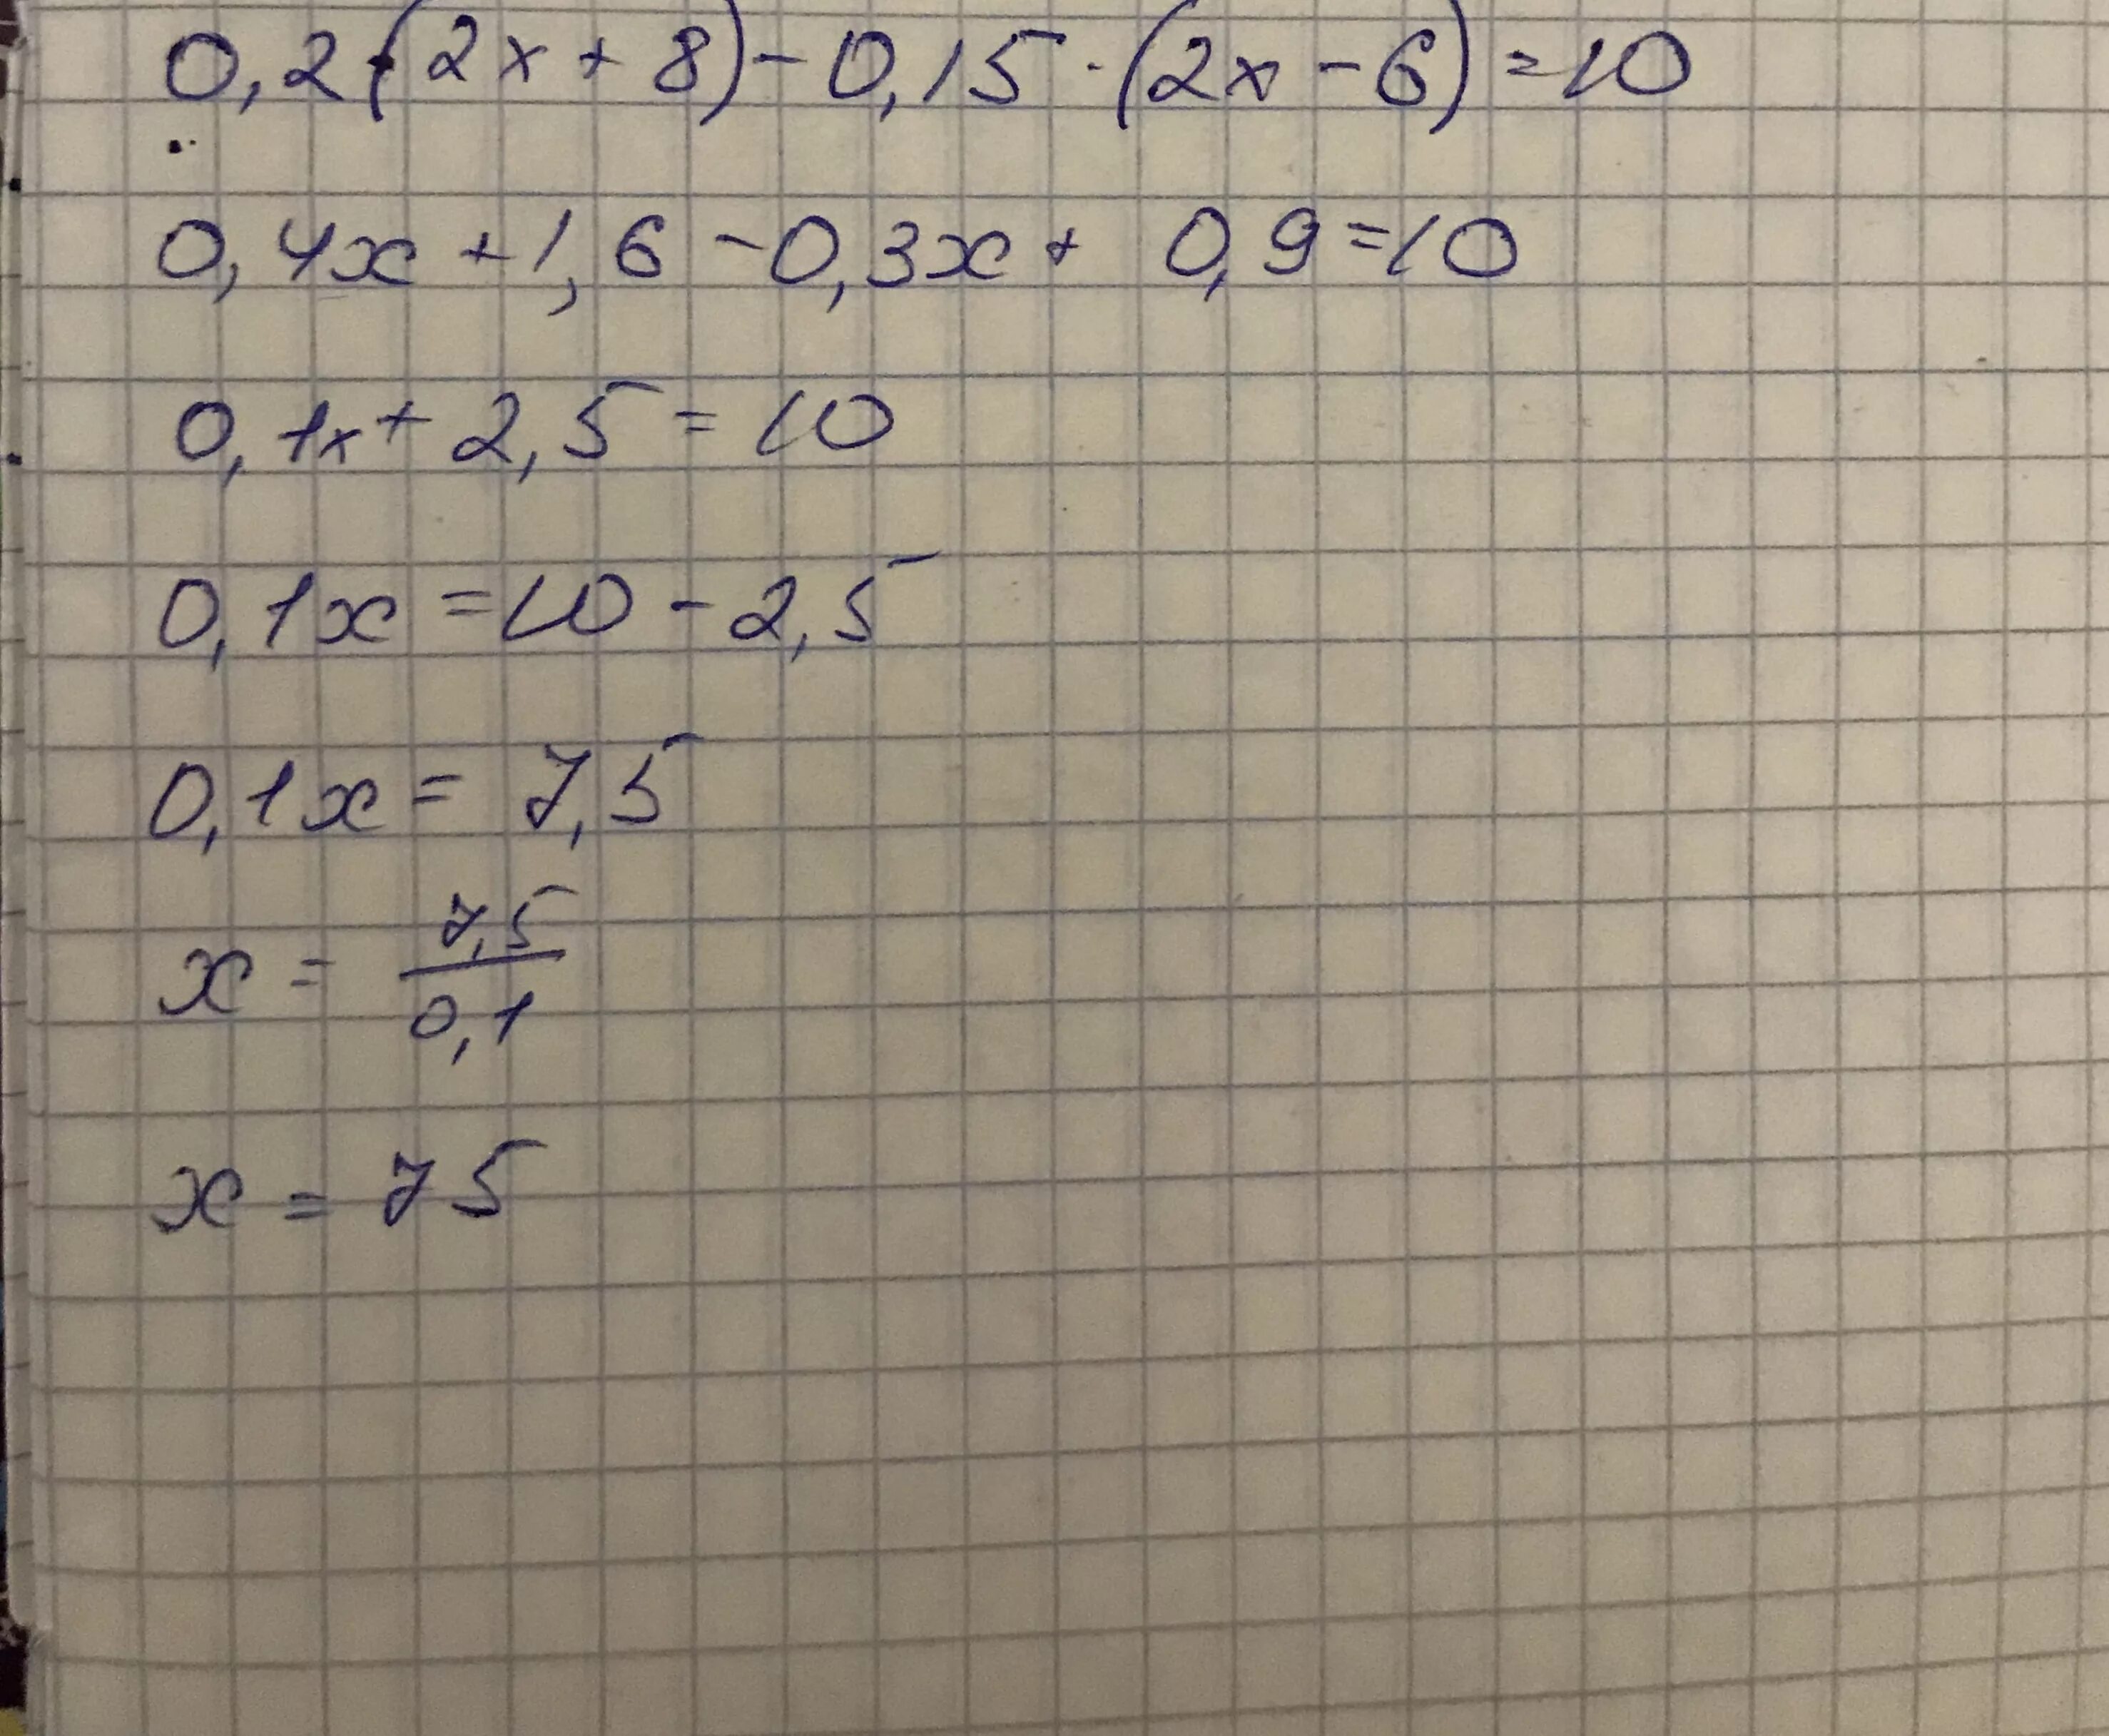 0,2·(2x+8)-0,15·(2x-6)=10
0,4x+1,6-0,3x+0,9=10
0,1x+2,5=10
0,1x=10-2,5
0,1x=7,5
x=7,5/0,1
x=75